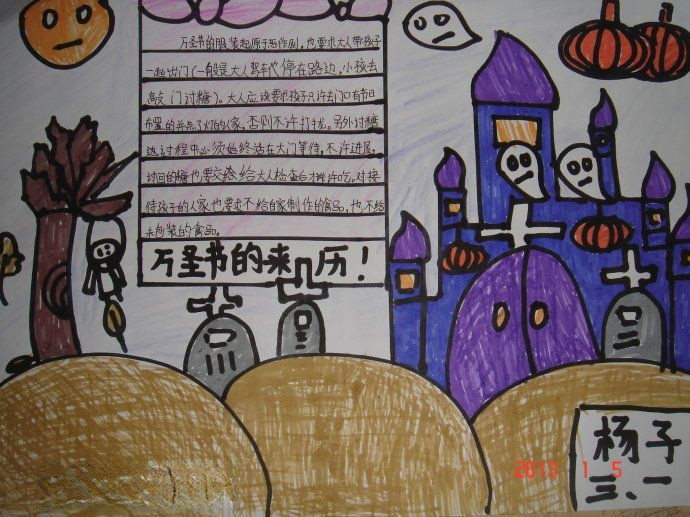 万圣节的服装起源于恶作剧,也要求大人带孩子
一起出门(一般是大人驾车停在路边,小孩去
敲门讨糖)。大人应该要求孩子只许去门口有节日
布置的并点了灯的人家,否则不许打扰。另外讨糖
过程中必须始终站在大门等待,不许进屋,
讨回的糖也要交给大人检查后才许吃。对接
待孩子的人家也要求不给自家制作的食品,也不给
未包装的食品。
万圣节的来历!
杨子
三、一
2013 1 5